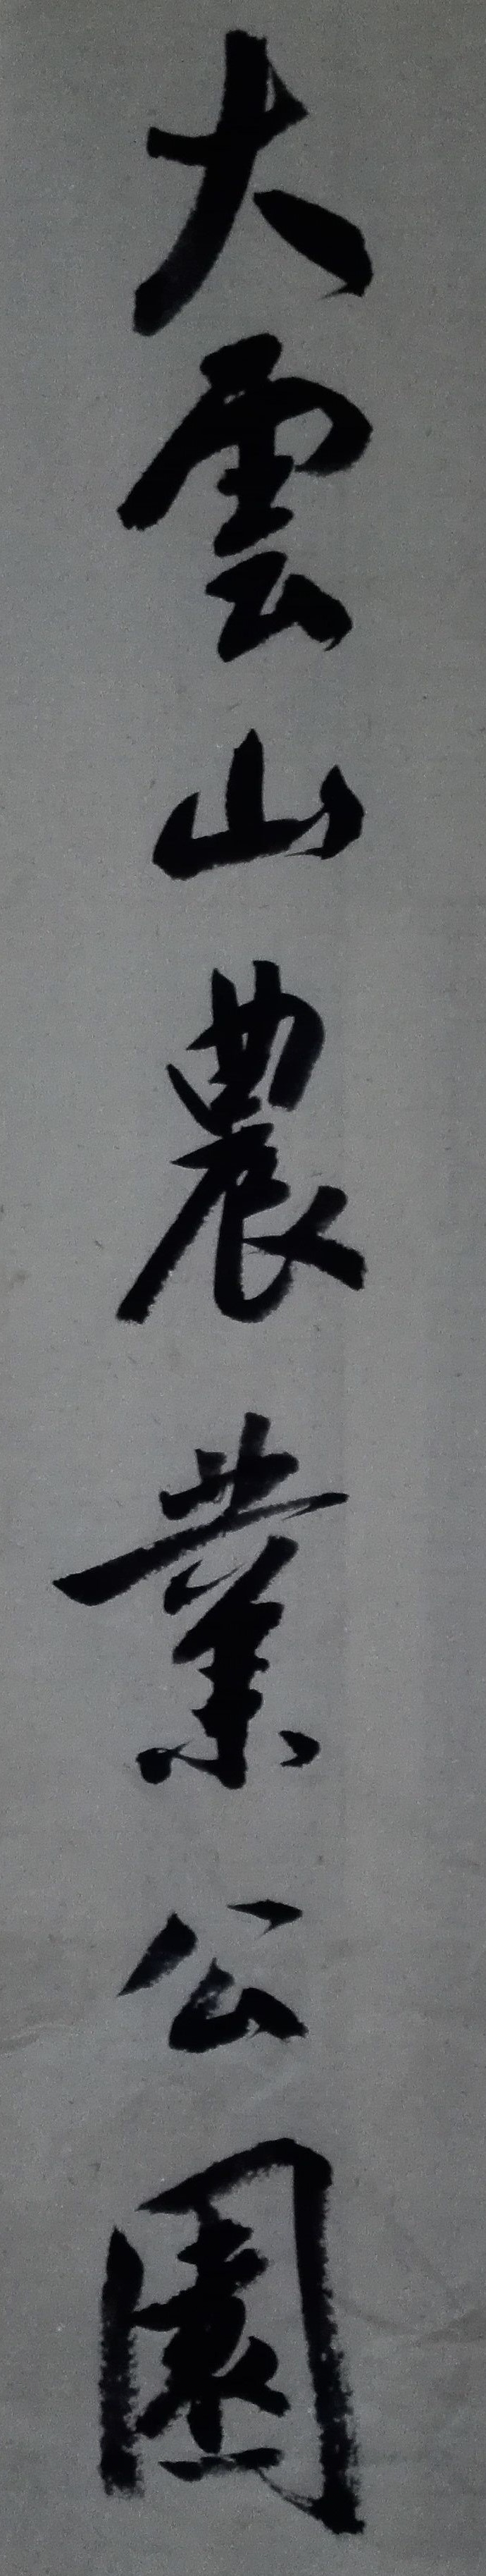 大雲山農業公園